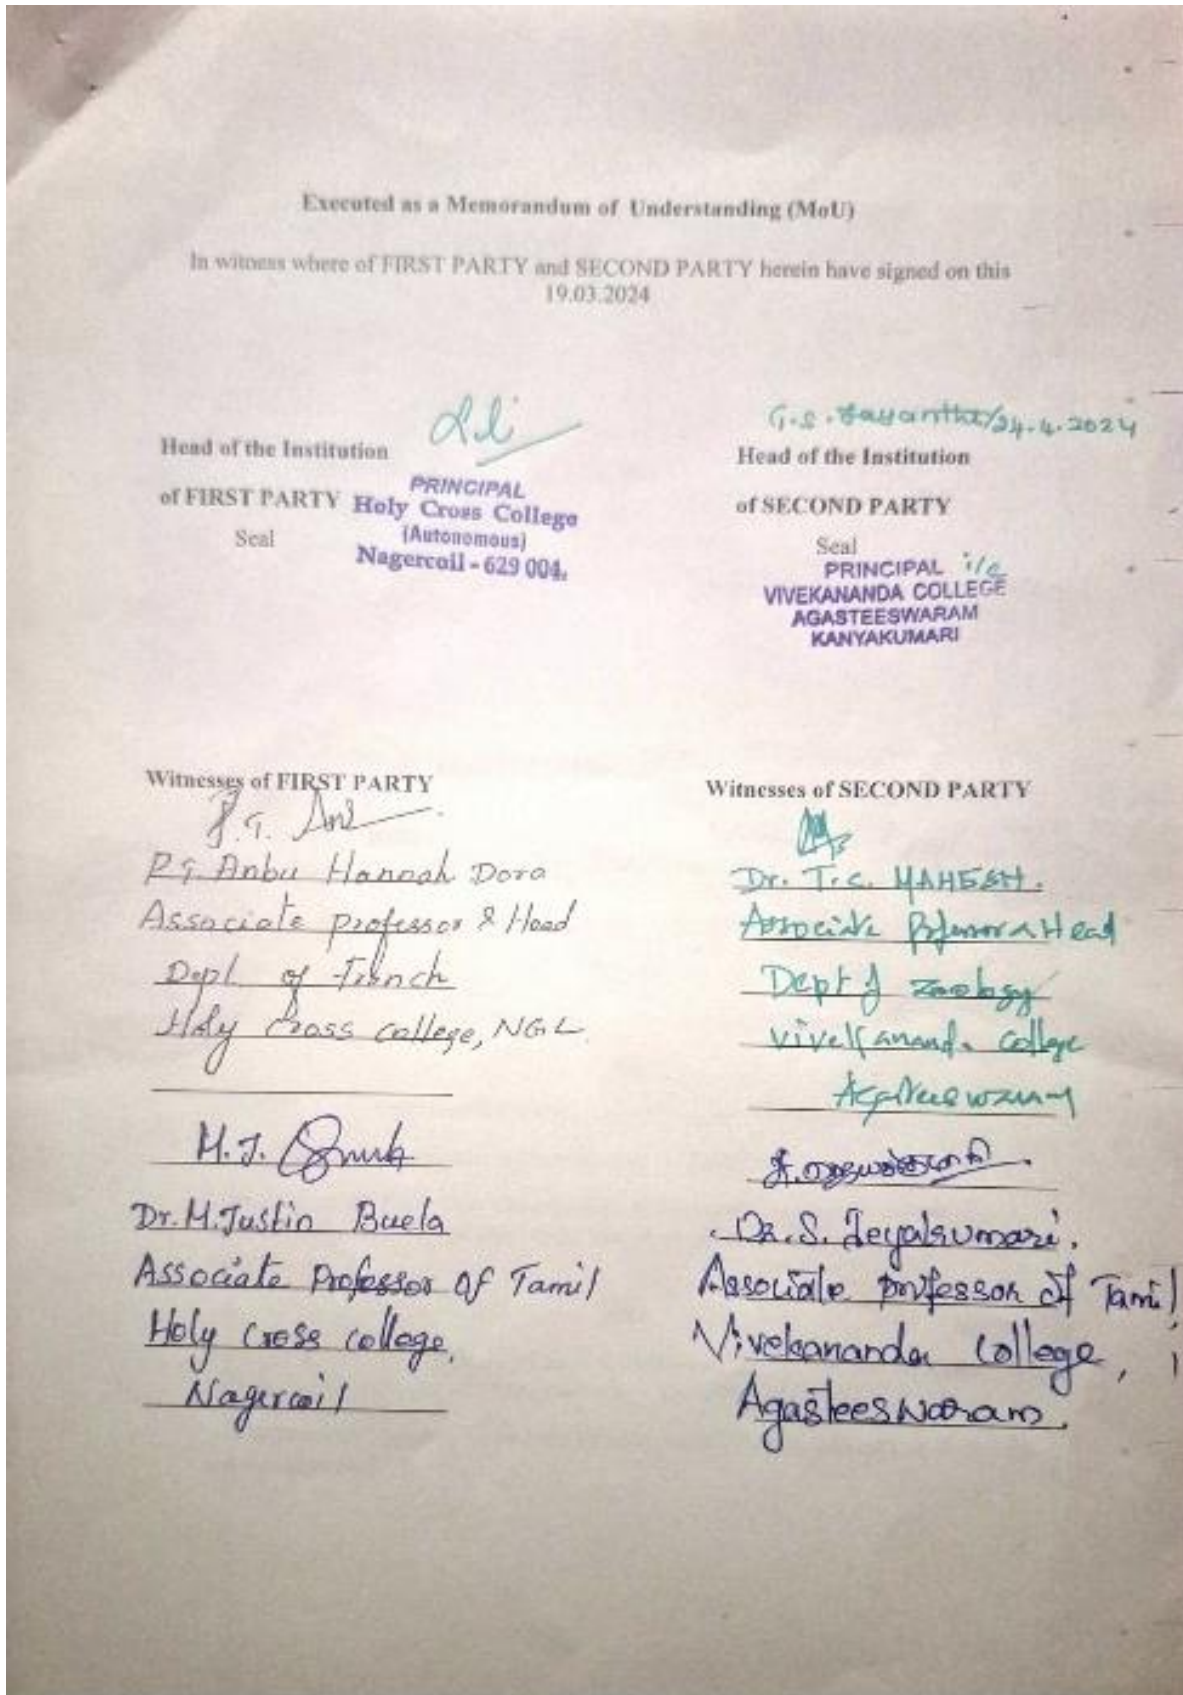 Executed as a Memorandum of Understanding (MoU)
In witness where of FIRST PARTY and SECOND PARTY herein have signed on this
19.03.2024
Head of the Institution
of FIRST PARTY
Seal
PRINCIPAL
Holy Cross College
(Autonomous)
Nagercoil - 629 004.
G.S. Jayantha/24.4.2024
Head of the Institution
of SECOND PARTY
Seal
PRINCIPAL i/c
VIVEKANANDA COLLEGE
AGASTEESWARAM
KANYAKUMARI
Witnesses of FIRST PARTY
P.G. Anbu Hannah Dora
Associate professor & Head
Dept. of French
Holy Cross college, NGL
M.J.
Dr. M. Justin Buela
Associate Professor of Tamil
Holy Cross College,
Nagercoil
Witnesses of SECOND PARTY
Dr. T.C. MAHESH.
Associate Professor & Head
Dept of Zoology
Vivekananda College
Agasteeswaram
Dr. S. Jeyakumari.
Associate professor of Tamil
Vivekananda College,
Agasteeswaram.